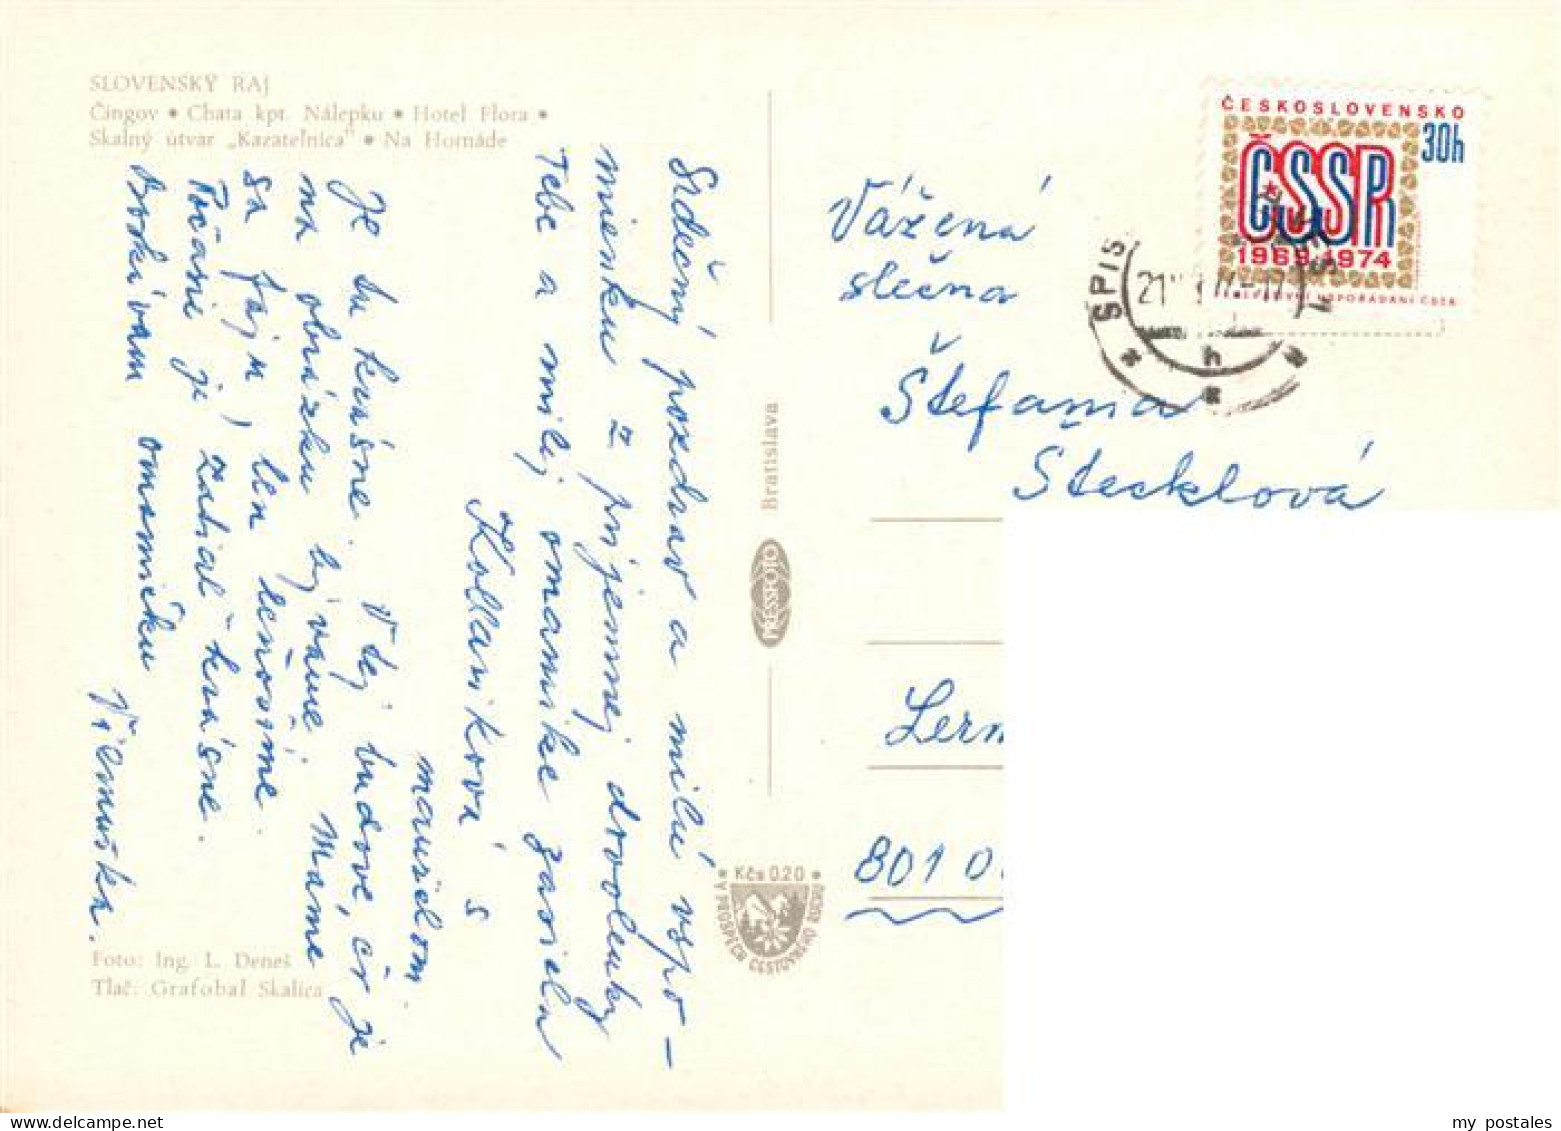 SLOVENSKÝ RAJ
Čingov • Chata kpt. Nálepku • Hotel Flora •
Skalný útvar „Kazateľnica" • Na Hornáde
Srdečný pozdrav a milú vspo-
mienku z príjemnej dovolenky
Tebe a milej omamike zasiela
Kollariková s
manželom
Je tu krásne. V tej budove, čo je
na obrázku bývame. Máme
sa fajn, len leňošíme.
Počasie je zatiaľ krásne.
Bozkávam omamičku
Viemuška.
Foto: Ing. L. Deneš
Tlač: Grafobal Skalica
Bratislava
PRESSFOTO
• Kčs 0.20 •
V PROSPECH CESTOVNÉHO RUCHU
ČESKOSLOVENSKO
30h
ČSSR
1969-1974
USPOŘÁDÁNÍ ČSSR
SPIS
21
h
Vážená
slečna
Štefania
Stecklová
Lerm
801 0
my postales